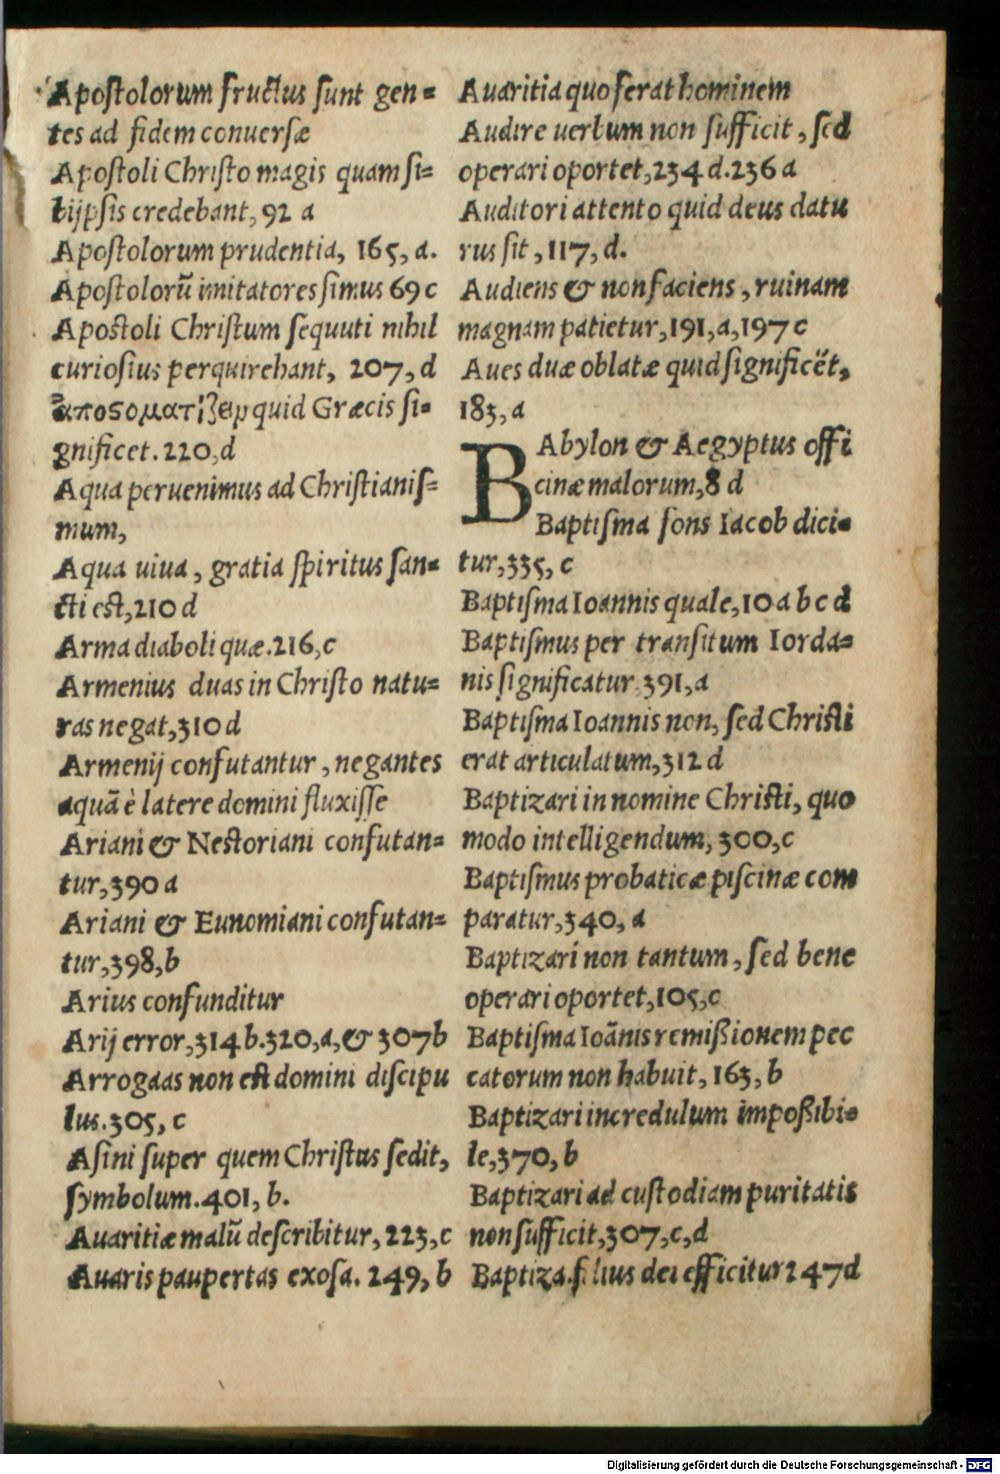 Apostolorum fructus sunt gen=
tes ad fidem conuersæ
Apostoli Christo magis quam si=
bijpsis credebant, 92 a
Apostolorum prudentia, 165, a.
Apostolorũ imitatores simus 69 c
Apostoli Christum sequuti nihil
curiosius perquirebant, 207, d
ἀποσομματίζειν quid Græcis si=
gnificet. 220, d
Aqua peruenimus ad Christianis=
mum,
Aqua uiua, gratia spiritus san=
cti est, 210 d
Arma diaboli quæ. 216, c
Armenius duas in Christo natu=
ras negat, 310 d
Armenij confutantur, negantes
aquã è latere domini fluxisse
Ariani & Nestoriani confutan=
tur, 390 a
Ariani & Eunomiani confutan=
tur, 398, b
Arius confunditur
Arij error, 314 b. 320, a, & 307 b
Arrogãas non est domini discipu
lus. 305, c
Asini super quem Christus sedit,
symbolum. 401, b.
Auaritiæ malũ describitur, 223, c
Auaris paupertas exosa. 249, b
Auaritia quo ferat hominem
Audire uerbum non sufficit, sed
operari oportet, 234 d. 236 a
Auditori attento quid deus datu
rus sit, 117, d.
Audiens & non faciens, ruinam
magnam patietur, 191, a, 197 c
Aues duæ oblatæ quid significẽt,
183, a
BAbylon & Aegyptus offi
cinæ malorum, 8 d
Baptisma fons Iacob dici=
tur, 335, c
Baptisma Ioannis quale, 10 a b c d
Baptismus per transitum Iorda=
nis significatur 391, a
Baptisma Ioannis non, sed Christi
erat articulatum, 312 d
Baptizari in nomine Christi, quo
modo intelligendum, 300, c
Baptismus probaticæ piscinæ com
paratur, 340, a
Baptizari non tantum, sed bene
operari oportet, 105, c
Baptisma Ioãnis remißionem pec
catorum non habuit, 163, b
Baptizari incredulum impoßibi=
le, 370, b
Baptizari ad custodiam puritatis
non sufficit, 307, c, d
Baptiza. filius dei efficitur 247 d
Digitalisierung gefördert durch die Deutsche Forschungsgemeinschaft - DFG